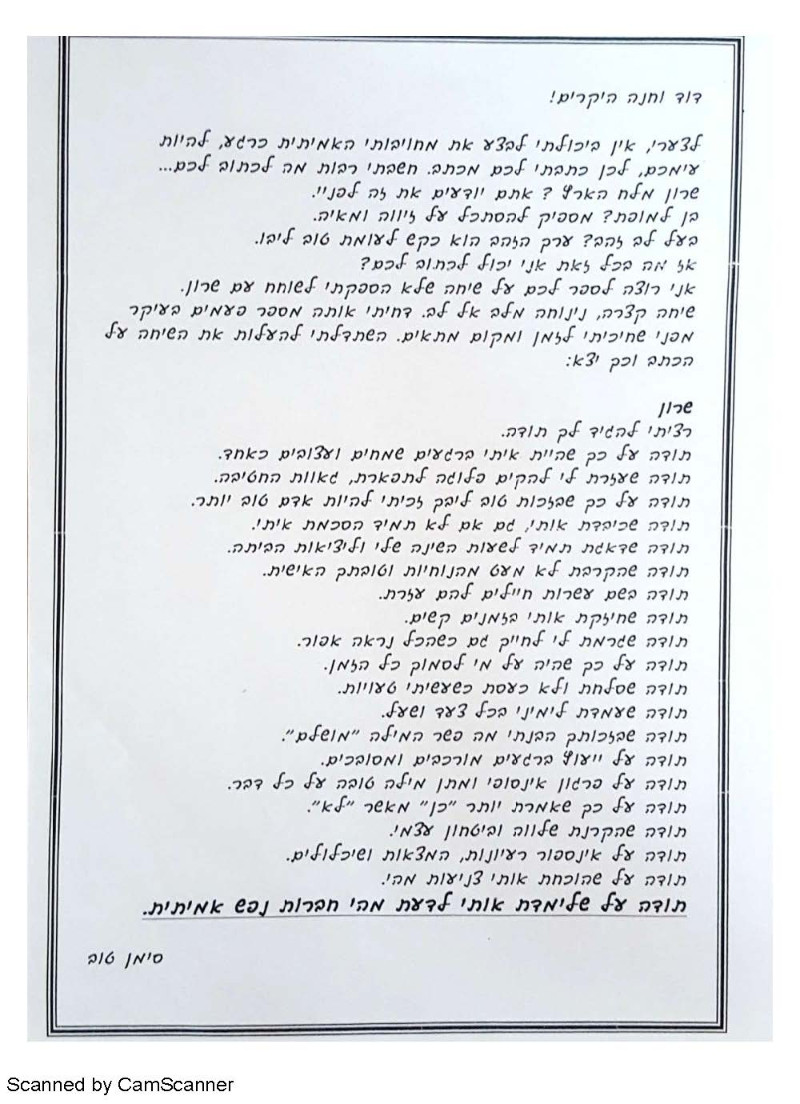 דוד וחנה היקרים!
לצערי, אין ביכולתי לבצע את מחויבותי האמיתית כרגע, להיות
עימכם, לכן כתבתי לכם מכתב. חשבתי רבות מה לכתוב לכם...
שרון מלח הארץ ? אתם יודעים את זה לפניי.
בן למופת? מספיק להסתכל על זיווה ומאיה.
בעל לב זהב? ערק הזהב הוא כקש לעומת טוב ליבו.
אז מה בכל זאת אני יכול לכתוב לכם?
אני רוצה לספר לכם על שיחה שלא הספקתי לשוחח עם שרון.
שיחה קצרה, נינוחה מלב אל לב. דחיתי אותה מספר פעמים בעיקר
מפני שחיכיתי לזמן ומקום מתאים. השתדלתי להעלות את השיחה על
הכתב וכך יצא:
שרון
רציתי להגיד לך תודה.
תודה על כך שהיית איתי ברגעים שמחים ועצובים כאחד.
תודה שעזרת לי להקים פלוגה לתפארת, גאוות החטיבה.
תודה על כך שבזכות טוב ליבך זכיתי להיות אדם טוב יותר.
תודה שכיבדת אותי, גם אם לא תמיד הסכמת איתי.
תודה שדאגת תמיד לשעות השינה שלי וליציאות הביתה.
תודה שהקרבת לא מעט מהנוחיות וטובתך האישית.
תודה בשם עשרות חיילים להם עזרת.
תודה שחיזקת אותי בזמנים קשים.
תודה שגרמת לי לחייך גם כשהכל נראה אפור.
תודה על כך שהיה על מי לסמוך כל הזמן.
תודה שסלחת ולא כעסת כשעשיתי טעויות.
תודה שעמדת לימיני בכל צעד ושעל.
תודה שבזכותך הבנתי מה פשר המילה "מושלם".
תודה על ייעוץ ברגעים מורכבים ומסובכים.
תודה על פרגון אינסופי ומתן מילה טובה על כל דבר.
תודה על כך שאמרת יותר "כן" מאשר "לא".
תודה שהקרנת שלווה וביטחון עצמי.
תודה על אינספור רעיונות, המצאות ושיכלולים.
תודה על שהוכחת אותי צניעות מהי.
תודה על שלימדת אותי לדעת מהי חברות נפש אמיתית.
סימן טוב
Scanned by CamScanner